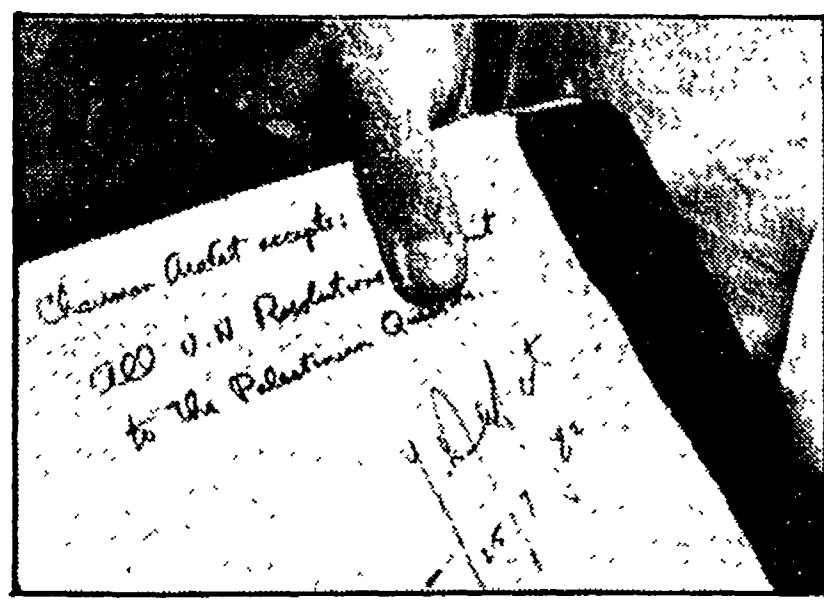 Chairman Arafat accepts:
All U.N Resolutions
to the Palestinian Question.
Y. Arafat